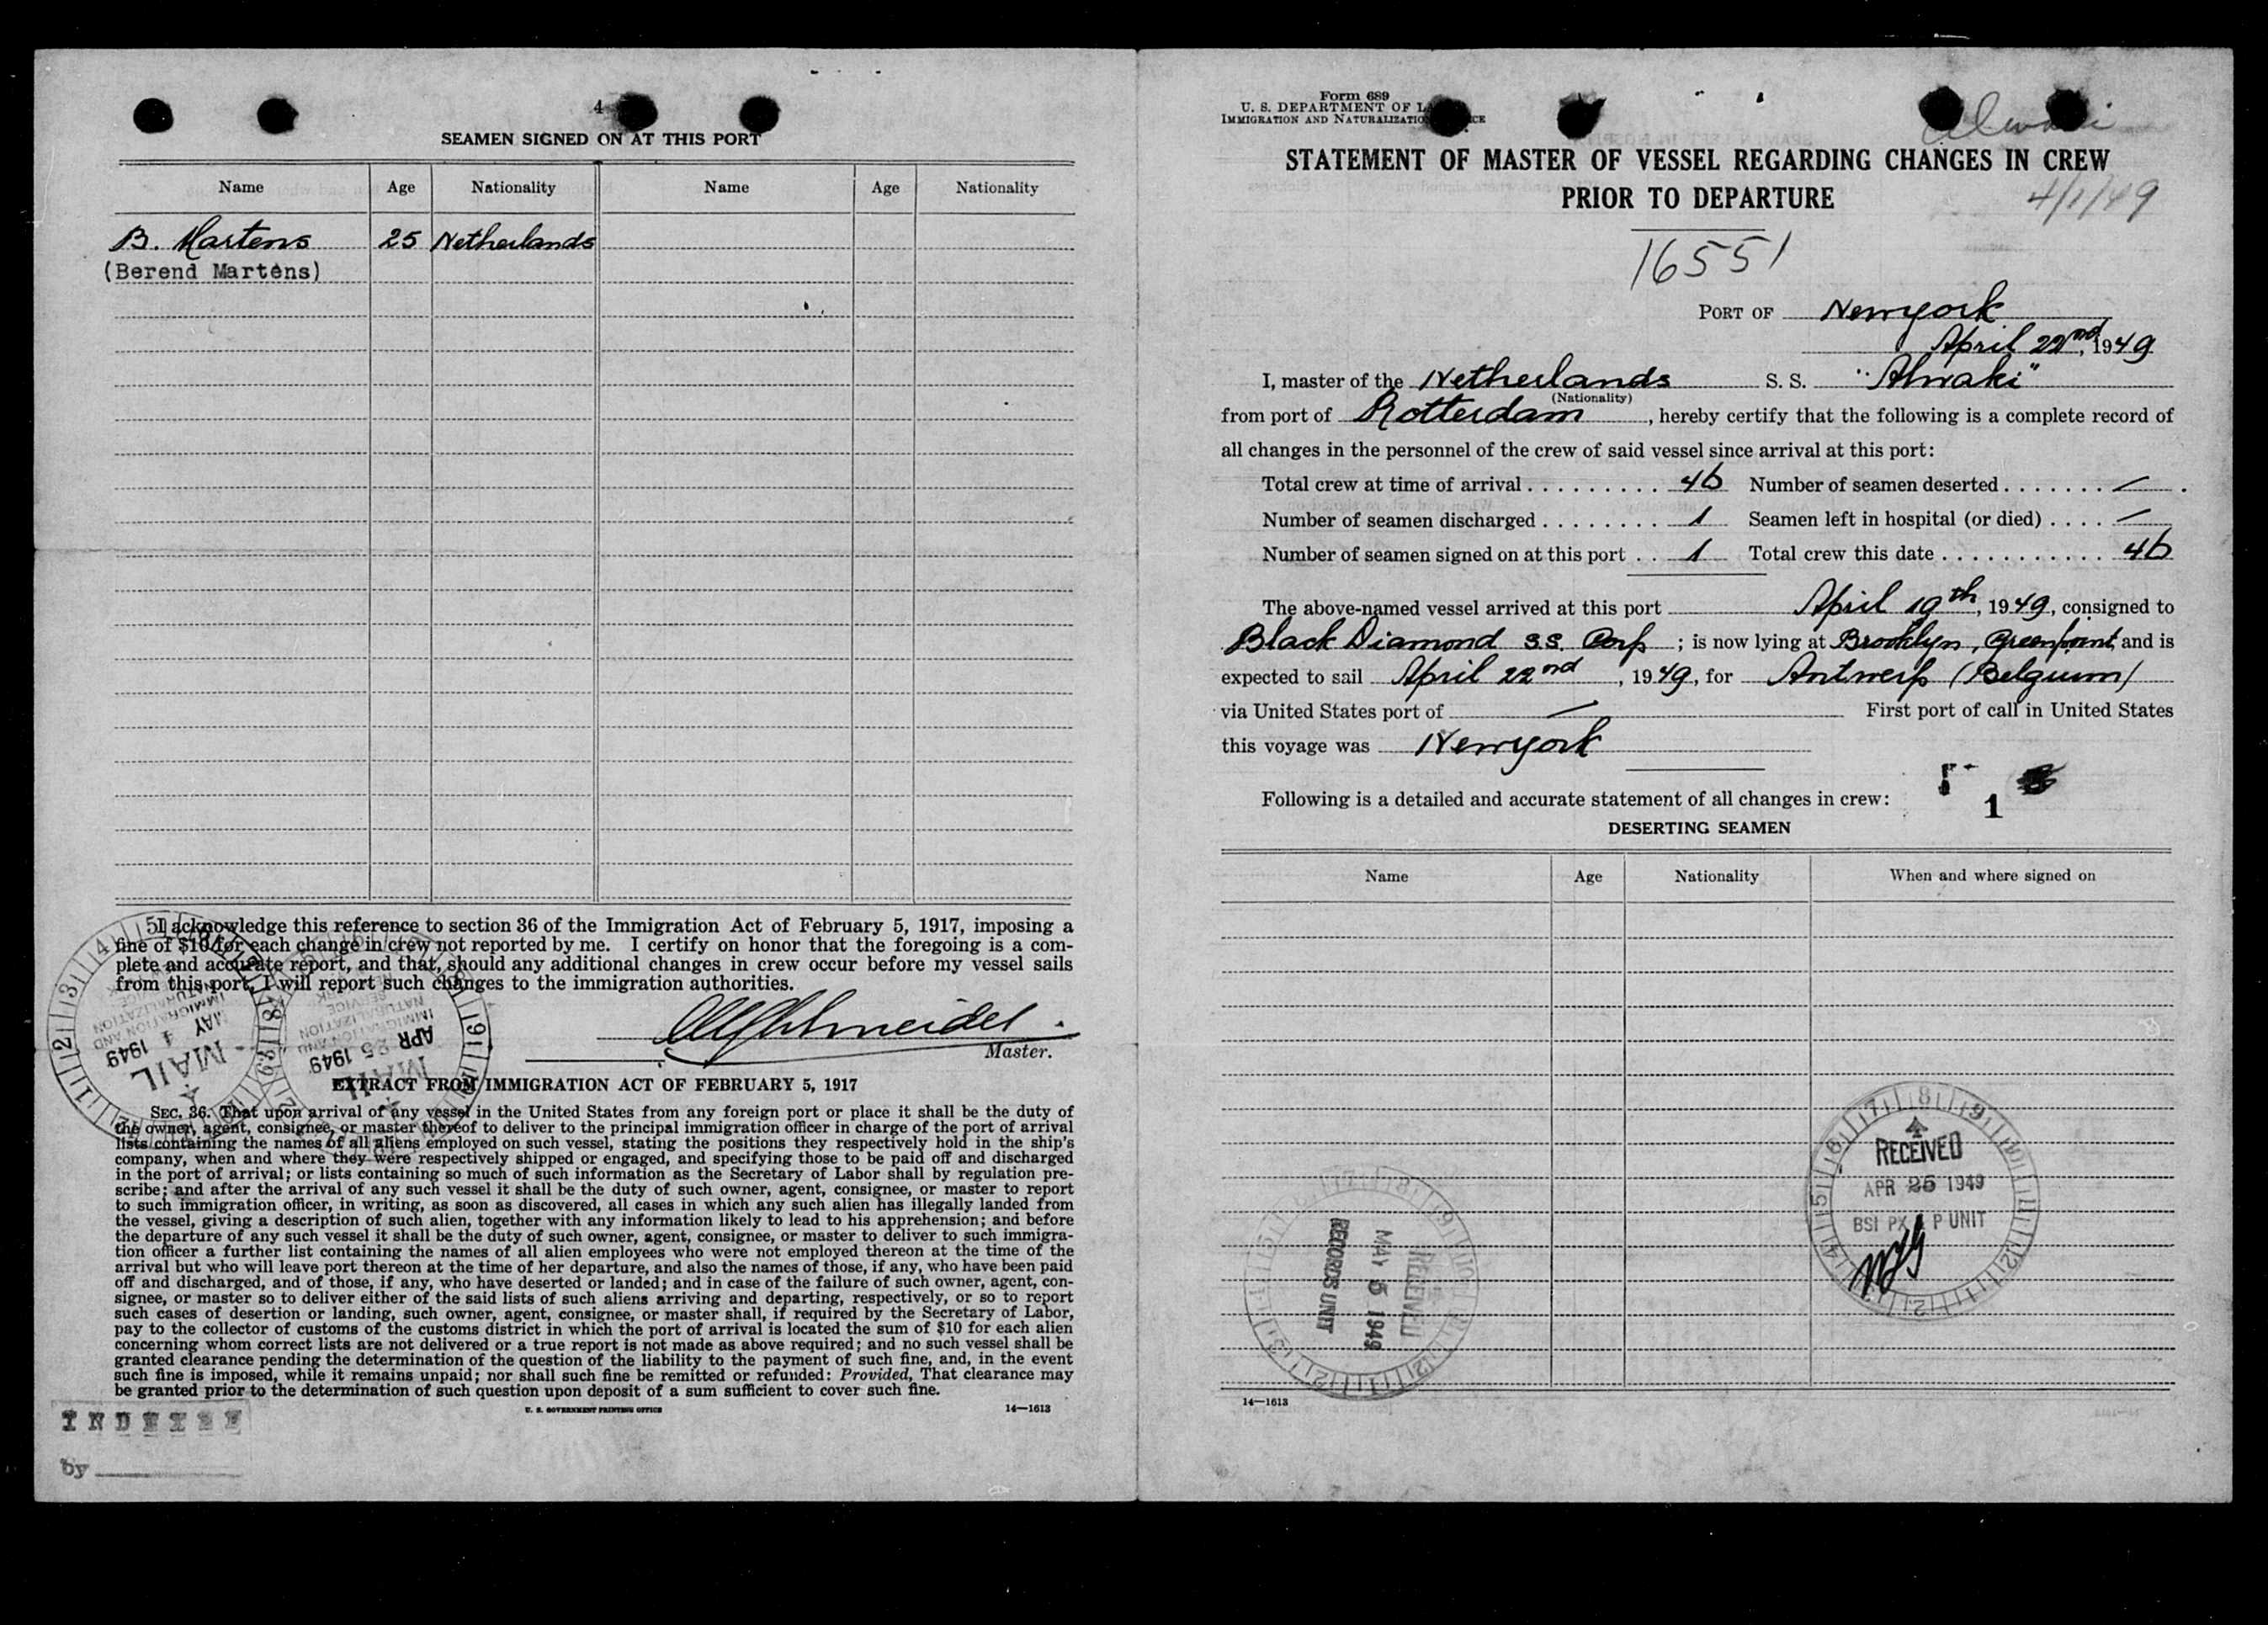 4
SEAMEN SIGNED ON AT THIS PORT
Name Age Nationality Name Age Nationality
B. Martens 25 Netherlands
(Berend Martens)
I acknowledge this reference to section 36 of the Immigration Act of February 5, 1917, imposing a
fine of $10 for each change in crew not reported by me. I certify on honor that the foregoing is a com-
plete and accurate report, and that, should any additional changes in crew occur before my vessel sails
from this port, I will report such changes to the immigration authorities.
Master.
MAIL
MAY 4 1949
IMMIGRATION AND
NATURALIZATION
SERVICE
MAIL
APR 25 1949
IMMIGRATION AND
NATURALIZATION
SERVICE
EXTRACT FROM IMMIGRATION ACT OF FEBRUARY 5, 1917
SEC. 36. That upon arrival of any vessel in the United States from any foreign port or place it shall be the duty of
the owner, agent, consignee, or master thereof to deliver to the principal immigration officer in charge of the port of arrival
lists containing the names of all aliens employed on such vessel, stating the positions they respectively hold in the ship's
company, when and where they were respectively shipped or engaged, and specifying those to be paid off and discharged
in the port of arrival; or lists containing so much of such information as the Secretary of Labor shall by regulation pre-
scribe; and after the arrival of any such vessel it shall be the duty of such owner, agent, consignee, or master to report
to such immigration officer, in writing, as soon as discovered, all cases in which any such alien has illegally landed from
the vessel, giving a description of such alien, together with any information likely to lead to his apprehension; and before
the departure of any such vessel it shall be the duty of such owner, agent, consignee, or master to deliver to such immigra-
tion officer a further list containing the names of all alien employees who were not employed thereon at the time of the
arrival but who will leave port thereon at the time of her departure, and also the names of those, if any, who have been paid
off and discharged, and of those, if any, who have deserted or landed; and in case of the failure of such owner, agent, con-
signee, or master so to deliver either of the said lists of such aliens arriving and departing, respectively, or so to report
such cases of desertion or landing, such owner, agent, consignee, or master shall, if required by the Secretary of Labor,
pay to the collector of customs of the customs district in which the port of arrival is located the sum of $10 for each alien
concerning whom correct lists are not delivered or a true report is not made as above required; and no such vessel shall be
granted clearance pending the determination of the question of the liability to the payment of such fine, and, in the event
such fine is imposed, while it remains unpaid; nor shall such fine be remitted or refunded: Provided, That clearance may
be granted prior to the determination of such question upon deposit of a sum sufficient to cover such fine.
U. S. GOVERNMENT PRINTING OFFICE 14—1613
INDEXED
by
Form 689
U. S. DEPARTMENT OF
IMMIGRATION AND NATURALIZATION
STATEMENT OF MASTER OF VESSEL REGARDING CHANGES IN CREW
PRIOR TO DEPARTURE
4/1/49
16551
PORT OF Newyork
April 22nd, 1949
I, master of the Netherlands S. S. "Alwaki"
(Nationality)
from port of Rotterdam, hereby certify that the following is a complete record of
all changes in the personnel of the crew of said vessel since arrival at this port:
Total crew at time of arrival......... 46 Number of seamen deserted....... —
Number of seamen discharged........ 1 Seamen left in hospital (or died).... —
Number of seamen signed on at this port.. 1 Total crew this date........... 46
The above-named vessel arrived at this port April 19th, 1949, consigned to
Black Diamond S.S. Corp; is now lying at Brooklyn, Greenpoint and is
expected to sail April 22nd, 1949, for Antwerp (Belgium)
via United States port of — First port of call in United States
this voyage was Newyork
Following is a detailed and accurate statement of all changes in crew:
1
DESERTING SEAMEN
Name Age Nationality When and where signed on
RECEIVED
APR 25 1949
BSI PX P UNIT
RECEIVED
MAY 5 1949
RECORDS UNIT
14—1613